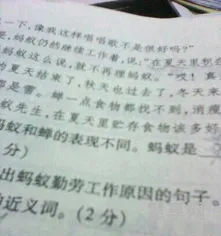 一下,像我这样唱唱歌不是很好吗?"
,蚂蚁仍然继续工作着,说:"在夏天里积
蚂蚁这么说,就不再理蚂蚁。"哎!真
夏天结束了,秋天也过去了,冬天来
都是雪。蝉一点食物都找不到,消瘦
蚁先生,在夏天里贮存食物该多好
蚂蚁和蝉的表现不同。蚂蚁是
分)
出蚂蚁勤劳工作原因的句子。
近义词。(2分)